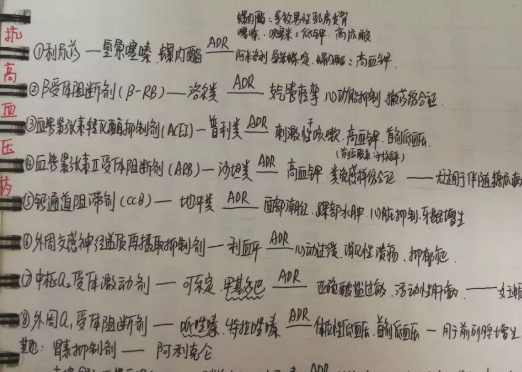 抗高血压药
螺内酯：导致男性乳房发育
噻嗪、呋噻米：低钾、高尿酸
①利尿药—氢氯噻嗪、螺内酯 ADR 阿米洛利 螺内酯：高血钾
②β受体阻断剂（β-RB）—洛尔类 ADR 支气管痉挛 心功能抑制 撤药综合征
③血管紧张素转化酶抑制剂（ACEI）—普利类 ADR 刺激性干咳、高血钾、首剂低血压
④血管紧张素Ⅱ受体阻断剂（ARB）—沙坦类 ADR 高血钾 类流感样综合征
⑤钙通道阻滞剂（CCB）—地平类 ADR 面部潮红、踝部水肿、心脏抑制、牙龈增生
⑥外周交感神经递质再摄取抑制剂—利血平 ADR 心动过缓、消化性溃疡、抑郁症
⑦中枢α₂受体激动剂—可乐定、甲基多巴 ADR 亚硫酸盐过敏、活动性肝病
⑧外周α₁受体阻断剂—哌唑嗪、特拉唑嗪 ADR 体位性低血压、首剂低血压—用于前列腺增生
肾素抑制剂—阿利克仑